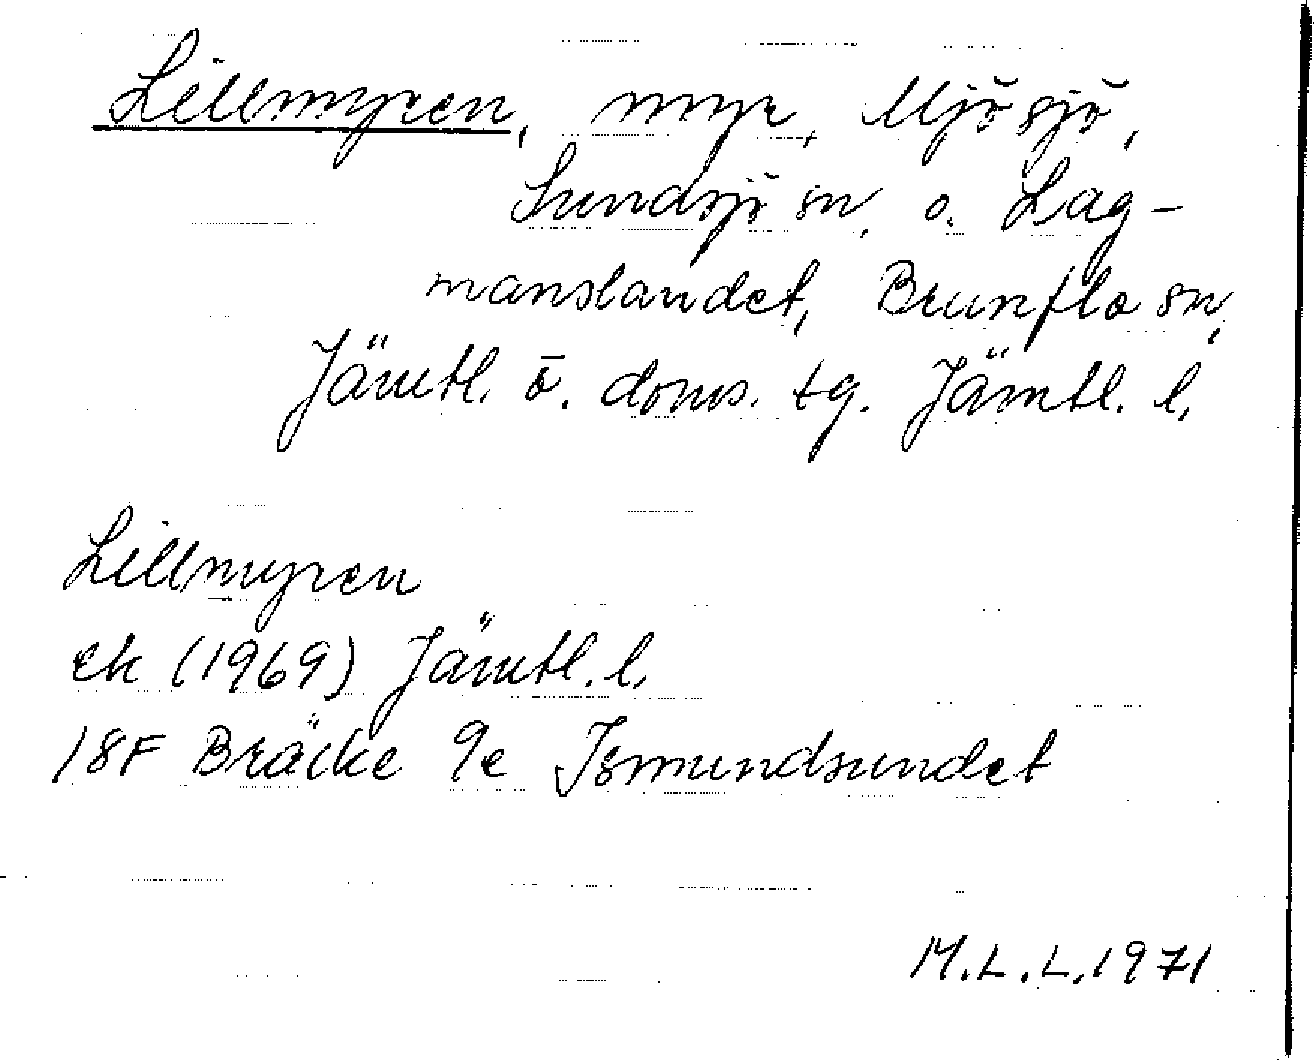 Lillmyren, myr, Mjösjö,
Sundsjö sn, o. Lag-
manslandet, Brunflo sn,
Jämtl. ö. doms. tg. Jämtl. l.
Lillmyren
ek (1969) Jämtl. l.
18F Bräcke 9e Ismundsundet
M.L.L. 1971